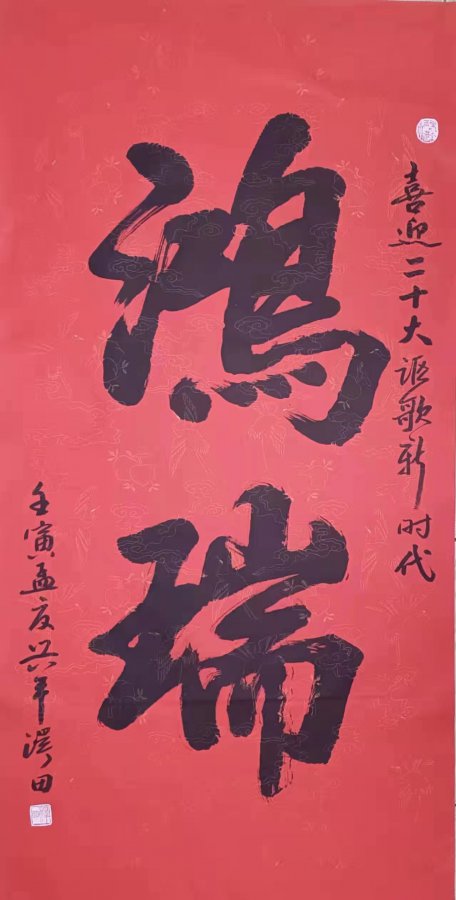 喜迎二十大讴歌新时代
鸿瑞
壬寅孟夏兴年溪田